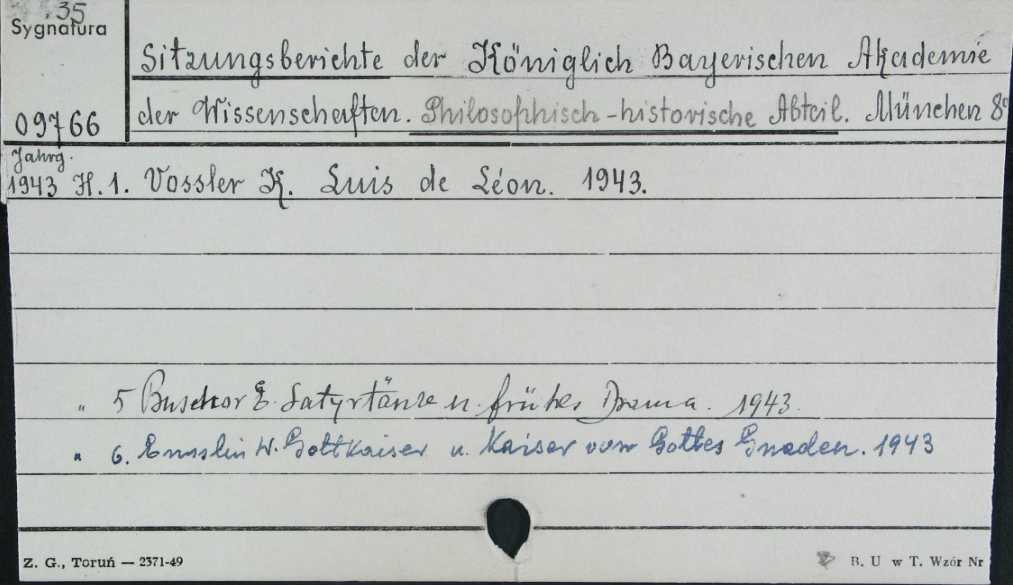 35
Sygnatura
Sitzungsberichte der Königlich Bayerischen Akademie
09766 der Wissenschaften. Philosophisch-historische Abteil. München 8°
Jahrg.
1943 H. 1. Vossler K. Luis de Léon. 1943.
" 5 Buschor E. Satyrtänze u. frühes Drama. 1943.
" 6. Ensslin W. Gottkaiser u. Kaiser von Gottes Gnaden. 1943
Z. G., Toruń — 2371-49
B. U w T. Wzór Nr